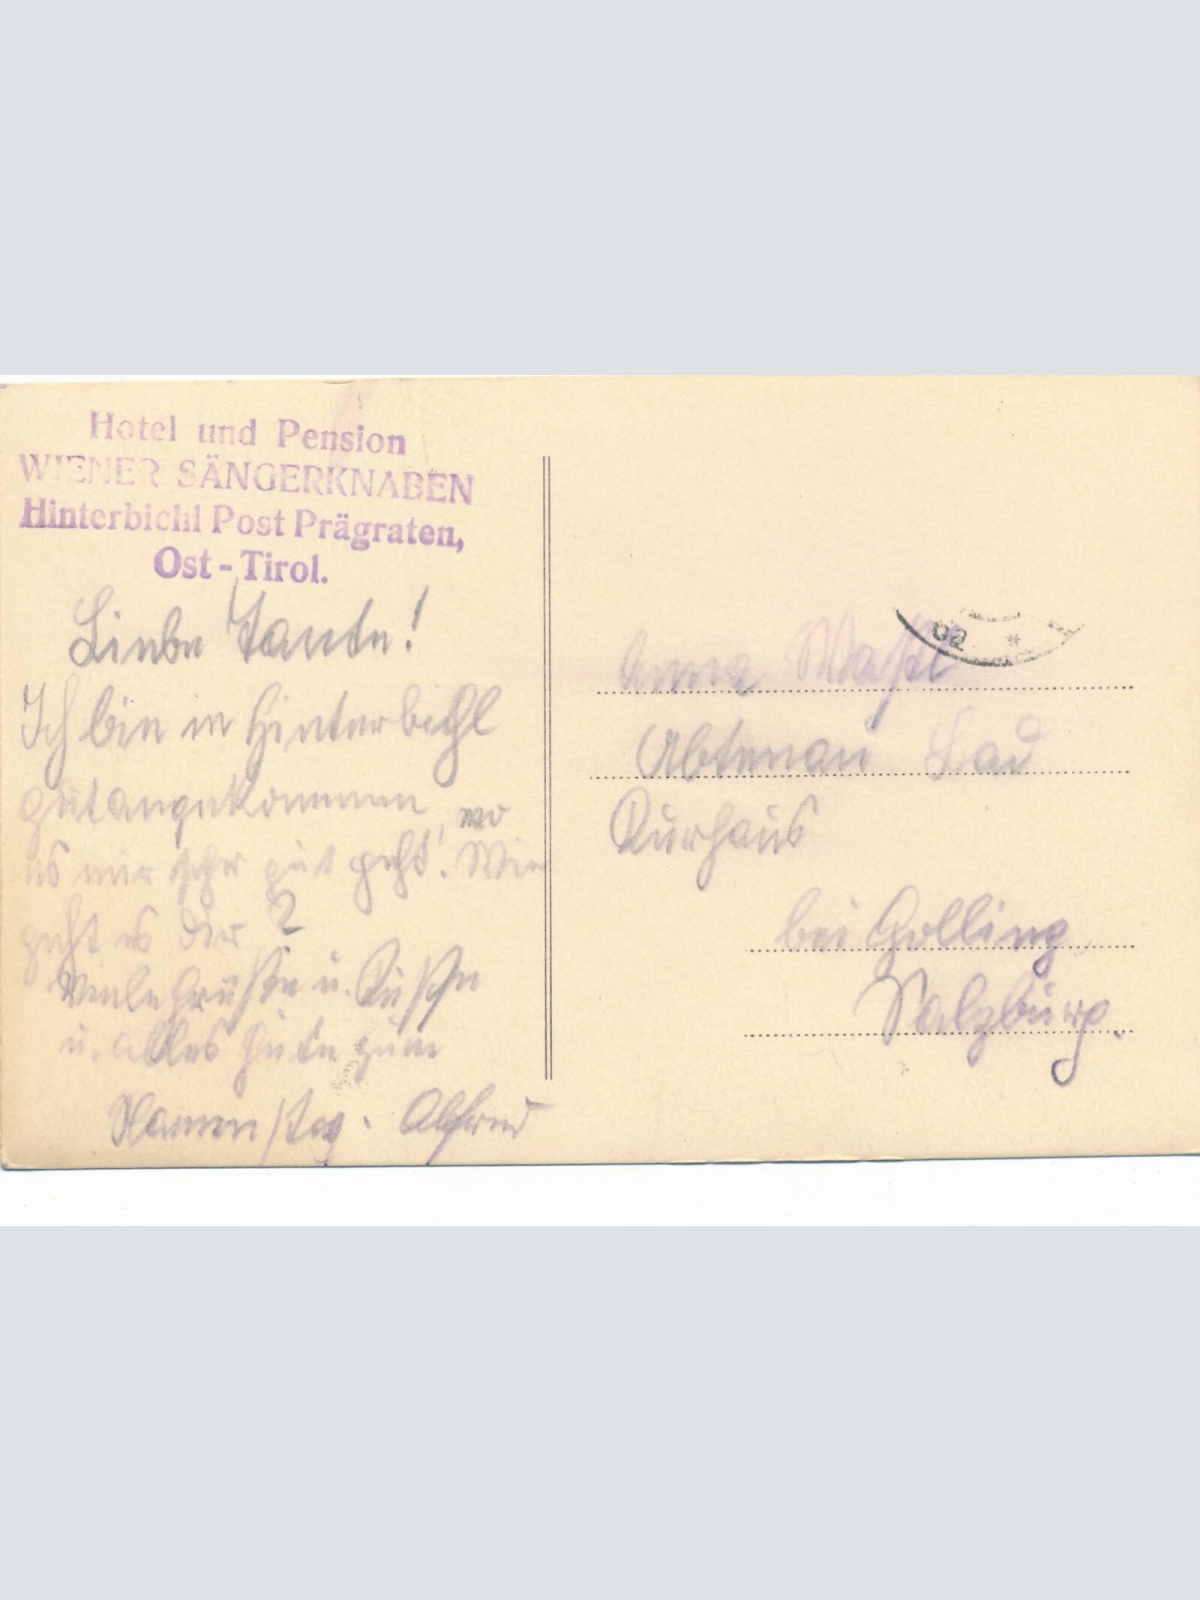 Hotel und Pension
WIENER SÄNGERKNABEN
Hinterbichl Post Prägraten,
Ost-Tirol.
Liebe Tante!
Ich bin in Hinterbichl
gut angekommen, wo
es mir sehr gut geht! Wie
geht es dir?
Viele Grüße u. Küsse
u. alles Gute zum
Namenstag. Alfred
Anna
Abtenau Bad
Kurhaus
bei Golling,
Salzburg.